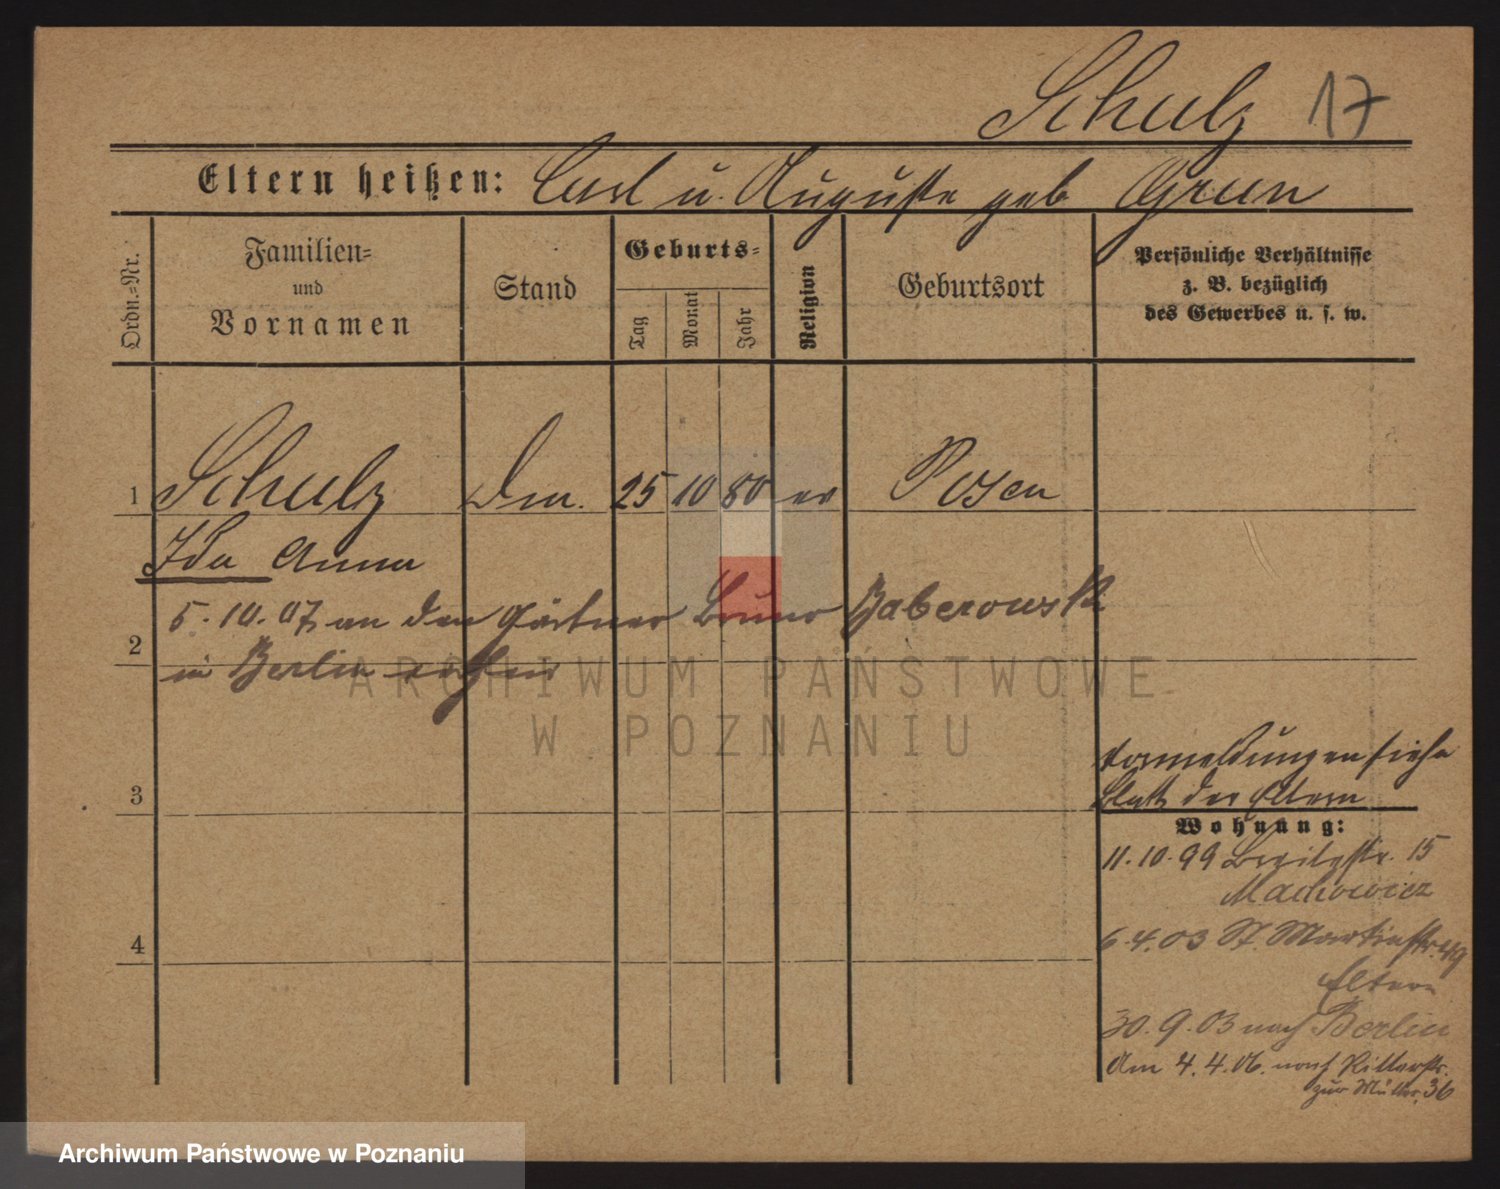 Schulz 17
Eltern heißen: Carl u. Auguste geb Grun
Ordn.-Nr.
Familien-
und
Vornamen
Stand
Geburts-
Tag
Monat
Jahr
Religion
Geburtsort
Persönliche Verhältnisse
z. B. bezüglich
des Gewerbes u. s. w.
1 Schulz 25 10 80 ev Posen
Ida Anna
5.10.07 an den Gärtner Bruno Baberowski
2
in Berlin
3
siehe
Blatt der Eltern
Wohnung:
11.10.99 Breitestr. 15
4
6.4.03 St. Martinstr. 49
Eltern
30.9.03 nach Berlin
Am 4.4.06. nach Ritterstr.
zur Mutter 36
ARCHIWUM PAŃSTWOWE
W POZNANIU
Archiwum Państwowe w Poznaniu